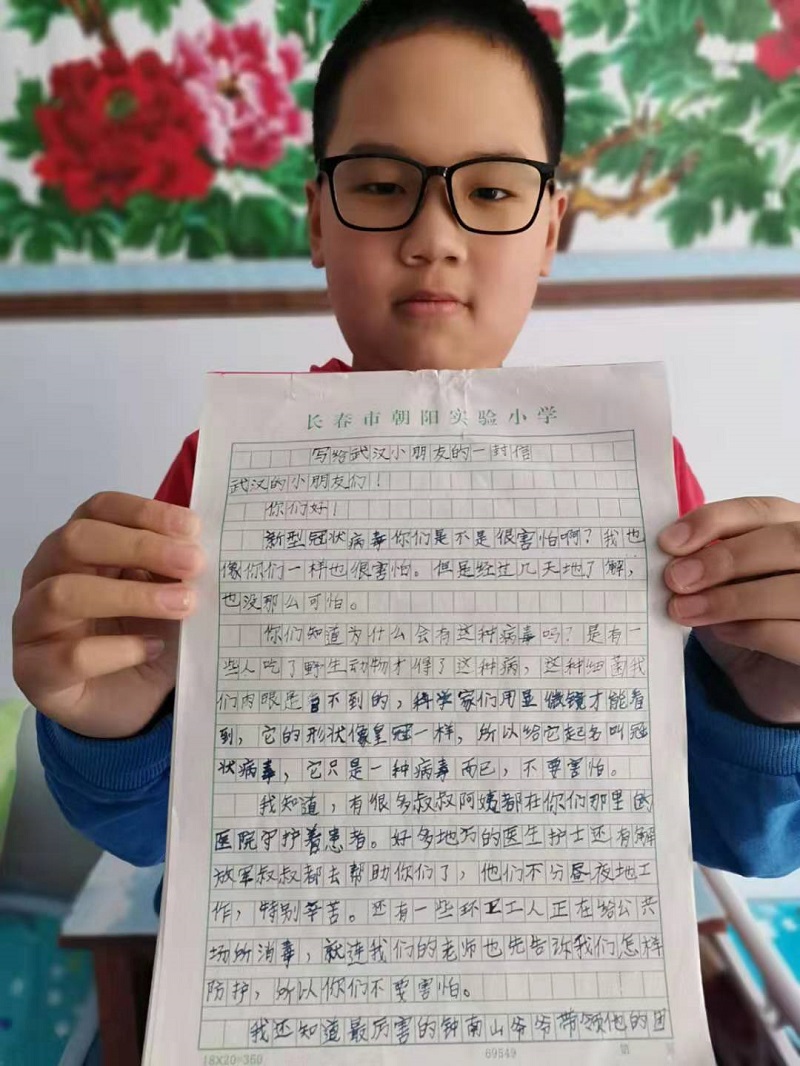 长春市朝阳实验小学
写给武汉小朋友的一封信
武汉的小朋友们！
你们好！
新型冠状病毒你们是不是很害怕啊？我也
像你们一样也很害怕。但是经过几天地了解，
也没那么可怕。
你们知道为什么会有这种病毒吗？是有一
些人吃了野生动物才得了这种病，这种细菌我
们肉眼是看不到的，科学家们用显微镜才能看
到，它的形状像皇冠一样，所以给它起名叫冠
状病毒，它只是一种病毒而已，不要害怕。
我知道，有很多叔叔阿姨都在你们那里的
医院守护着患者。好多地方的医生护士还有解
放军叔叔都去帮助你们了，他们不分昼夜地工
作，特别辛苦。还有一些环卫工人正在给公共
场所消毒，就连我们的老师也先告诉我们怎样
防护，所以你们不要害怕。
我还知道最厉害的钟南山爷爷带领他的团
18X20=360 69549 第